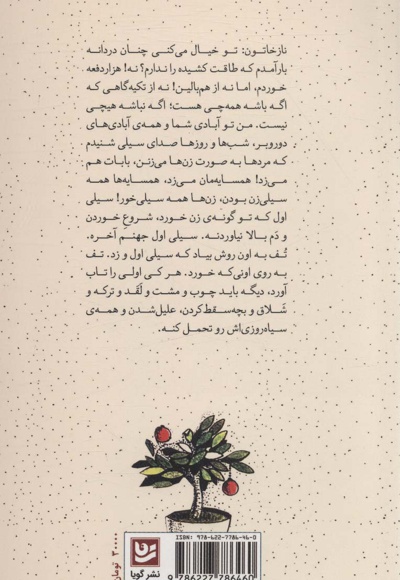 نازخاتون: تو خیال می‌کنی چنان دردانه
بارآمدم که طاقت کشیده را ندارم؟ نه! هزاردفعه
خوردم، اما نه از هم‌بالین! نه از تکیه‌گاهی که
اگه باشه همه‌چی هست؛ اگه نباشه هیچی
نیست. من تو آبادی شما و همه‌ی آبادی‌های
دوروبر، شب‌ها و روزها صدای سیلی شنیدم
که مردها به صورت زن‌ها می‌زنن، بابات هم
می‌زد! همسایه‌مان می‌زد، همسایه‌ها همه
سیلی‌زن بودن، زن‌ها همه سیلی‌خور! سیلی
اول که تو گونه‌ی زن خورد، شروعِ خوردن
و دَم بالا نیاوردنه. سیلی اول جهنمِ آخره.
تُف به اون روش بیاد که سیلی اول و زد. تف
به روی اونی‌که خورد. هر کی اولی را تاب
آورد، دیگه باید چوب و مشت و لَقَد و ترکه و
شَلاق و بچه‌سقط‌کردن، علیل‌شدن و همه‌ی
سیاه‌روزی‌اش رو تحمل کنه.
ISBN: 978-622-7786-46-0
9 786227 786460
نشر گویا
تومان